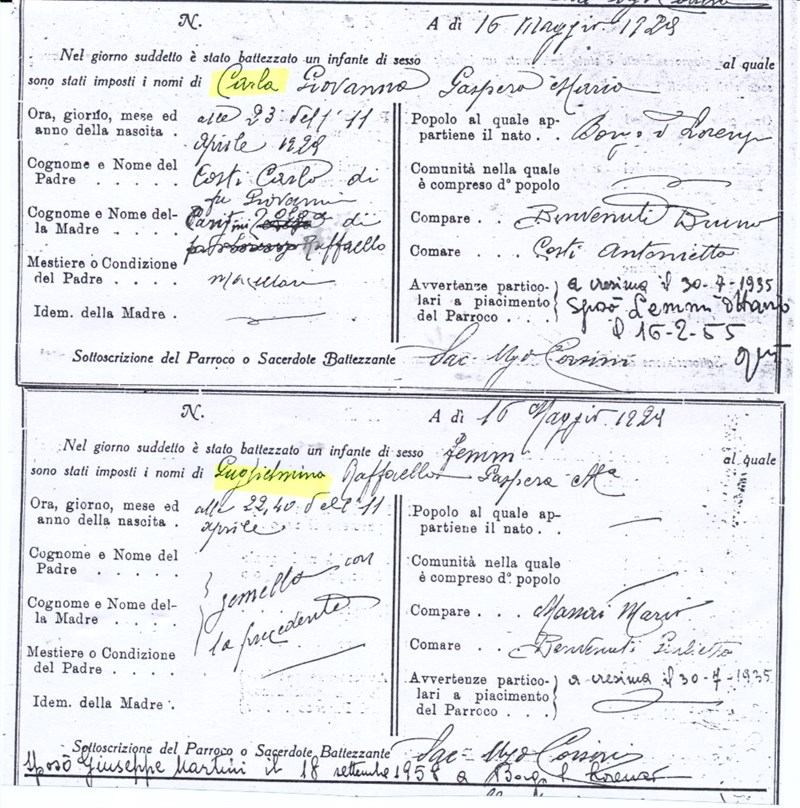 N. A dì 16 Maggio 1929
Nel giorno suddetto è stato battezzato un infante di sesso al quale
sono stati imposti i nomi di Carla Giovanna Gaspera Maria
Ora, giorno, mese ed
anno della nascita. alle 23 dell'11
aprile 1929
Cognome e Nome del
Padre . . . . . Costi Carlo di
fu Giovanni
Cognome e Nome del-
la Madre . . . . di
Raffaello
Mestiere o Condizione
del Padre . . . . macellaio
Idem. della Madre .
Popolo al quale ap-
partiene il nato . . Borgo S. Lorenzo
Comunità nella quale
è compreso d° popolo
Compare . . . Benvenuti Bruno
Comare . . . Costi Antonietta
Avvertenze partico-
lari a piacimento
del Parroco . . . a cresima il 30-7-1935
Sposò Lemmi
il 16-2-55
qui
Sottoscrizione del Parroco o Sacerdote Battezzante Sac. Ugo Corsini
N. A dì 16 Maggio 1929
Nel giorno suddetto è stato battezzato un infante di sesso femm al quale
sono stati imposti i nomi di Guglielmina Raffaella Gaspera Ma
Ora, giorno, mese ed
anno della nascita. alle 22,40 dell'11
aprile
Cognome e Nome del
Padre . . . . .
Cognome e Nome del-
la Madre . . . .
gemella con
la precedente
Mestiere o Condizione
del Padre . . . .
Idem. della Madre .
Popolo al quale ap-
partiene il nato .
Comunità nella quale
è compreso d° popolo
Compare . . . Mario
Comare . . . Benvenuti Giulietta
Avvertenze partico-
lari a piacimento
del Parroco . . . a cresima il 30-7-1935
Sottoscrizione del Parroco o Sacerdote Battezzante Sac. Ugo Corsini
Sposò Giuseppe Martini il 18 settembre 1958 a Borgo S. Lorenzo